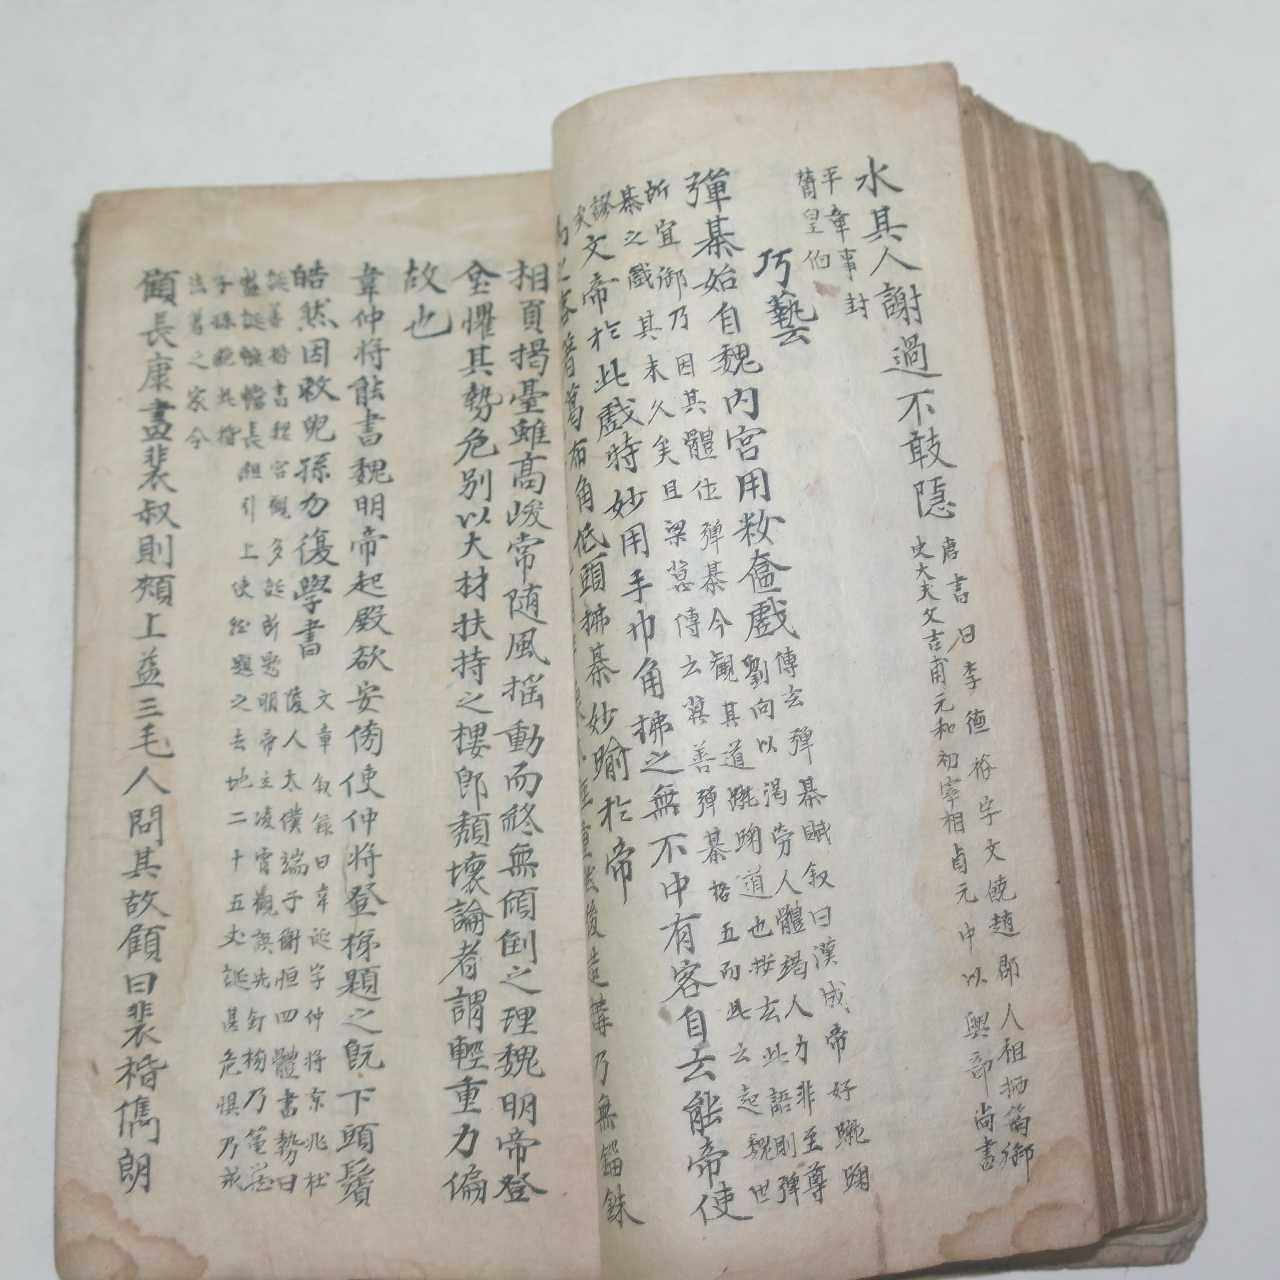 水其人謝過不敢隱
唐書曰李德裕字文饒趙郡人祖栖筠御
史大夫父吉甫元和初宰相貞元中以興部尚書
平章事封
贊皇伯
巧藝
彈棊始自魏內宮用粧奩戲
傅玄彈棊賦叙曰漢成帝好蹴踘
劉向以謂勞人體竭人力非至尊
所宜御乃因其體位彈棊今観其道蹴踘道也按玄此語則彈
棊之戲其来久矣且梁冀傳云冀善彈棊格五而此云起魏世
謬矣
文帝於此戲特妙用手巾角拂之無不中有客自云能帝使
為之客著葛巾角低頭拂棊妙踰於帝
重然後造構乃無錙銖
相頁揭臺雖高峻常随風揺動而終無傾倒之理魏明帝登
㙓懼其勢危別以大材扶持之樓郎頽壞論者謂輕重力偏
故也
韋仲將能書魏明帝起殿欲安傍使仲將登梯題之既下頭鬢
皓然因敕兒孫勿復學書
文章叙錄曰韋誕字仲將京兆杜
陵人太僕端子衛恒四體書勢曰
誕善楷書魏宫觀多誕所題明帝立凌霄觀誤先釘榜乃籠盛
誕轆轤長絙引上使就題之去地二十五丈誕甚危惧乃戒
子孫絶此楷
法著之家令
顧長康畫裴叔則頰上益三毛人問其故顧曰裴楷儁朗